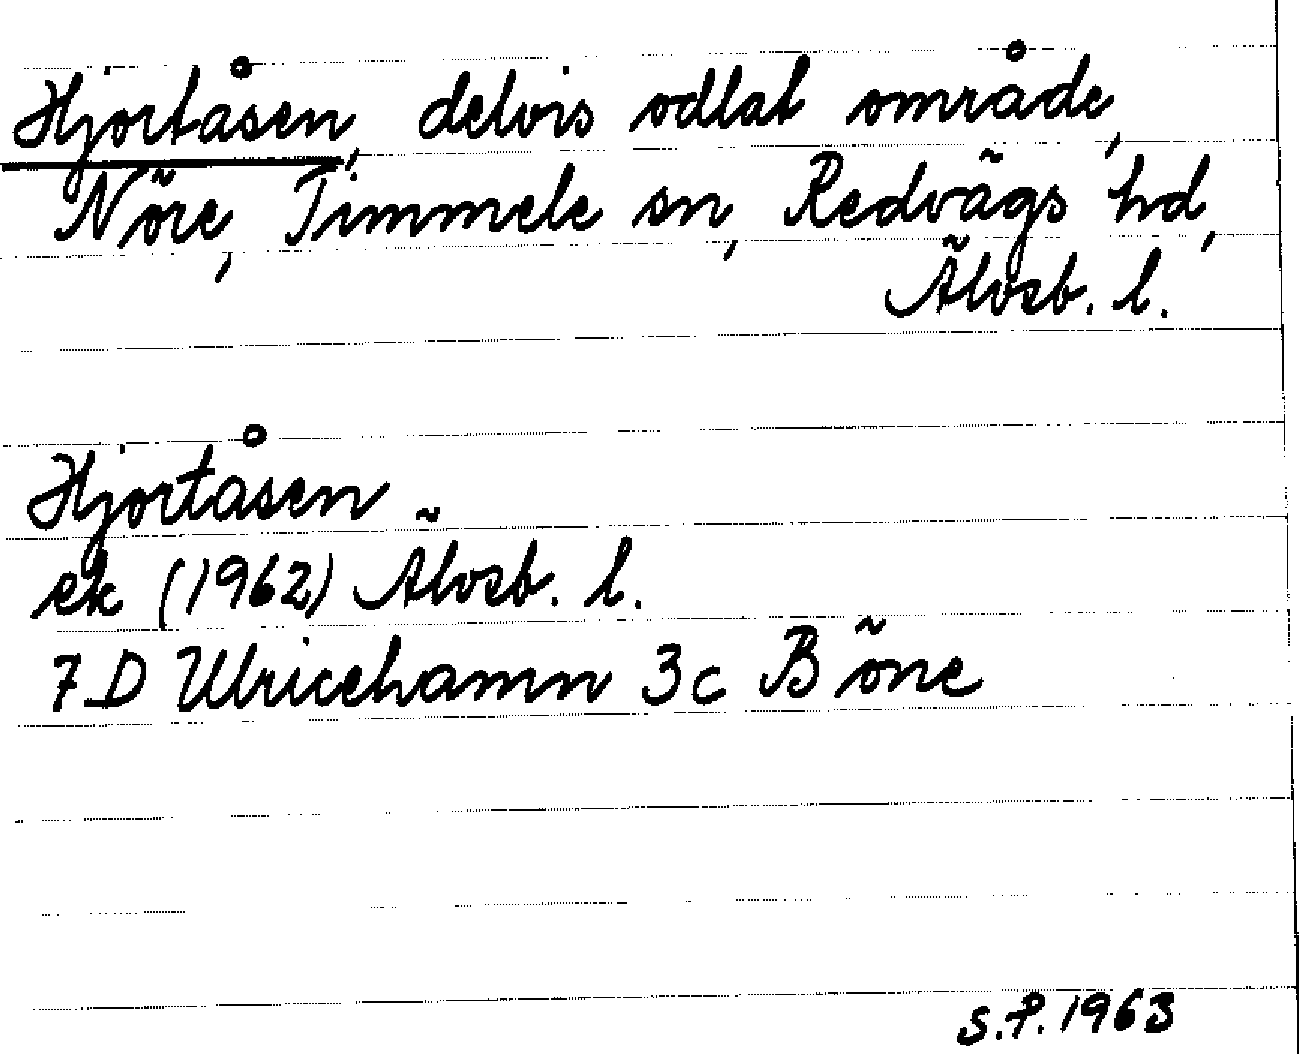 Hjortåsen, delvis odlat område,
Nöre, Timmele sn, Redvägs hd,
Älvsb. l.
Hjortåsen
ek (1962) Älvsb. l.
7D Ulricehamn 3c Böne
S.P. 1963